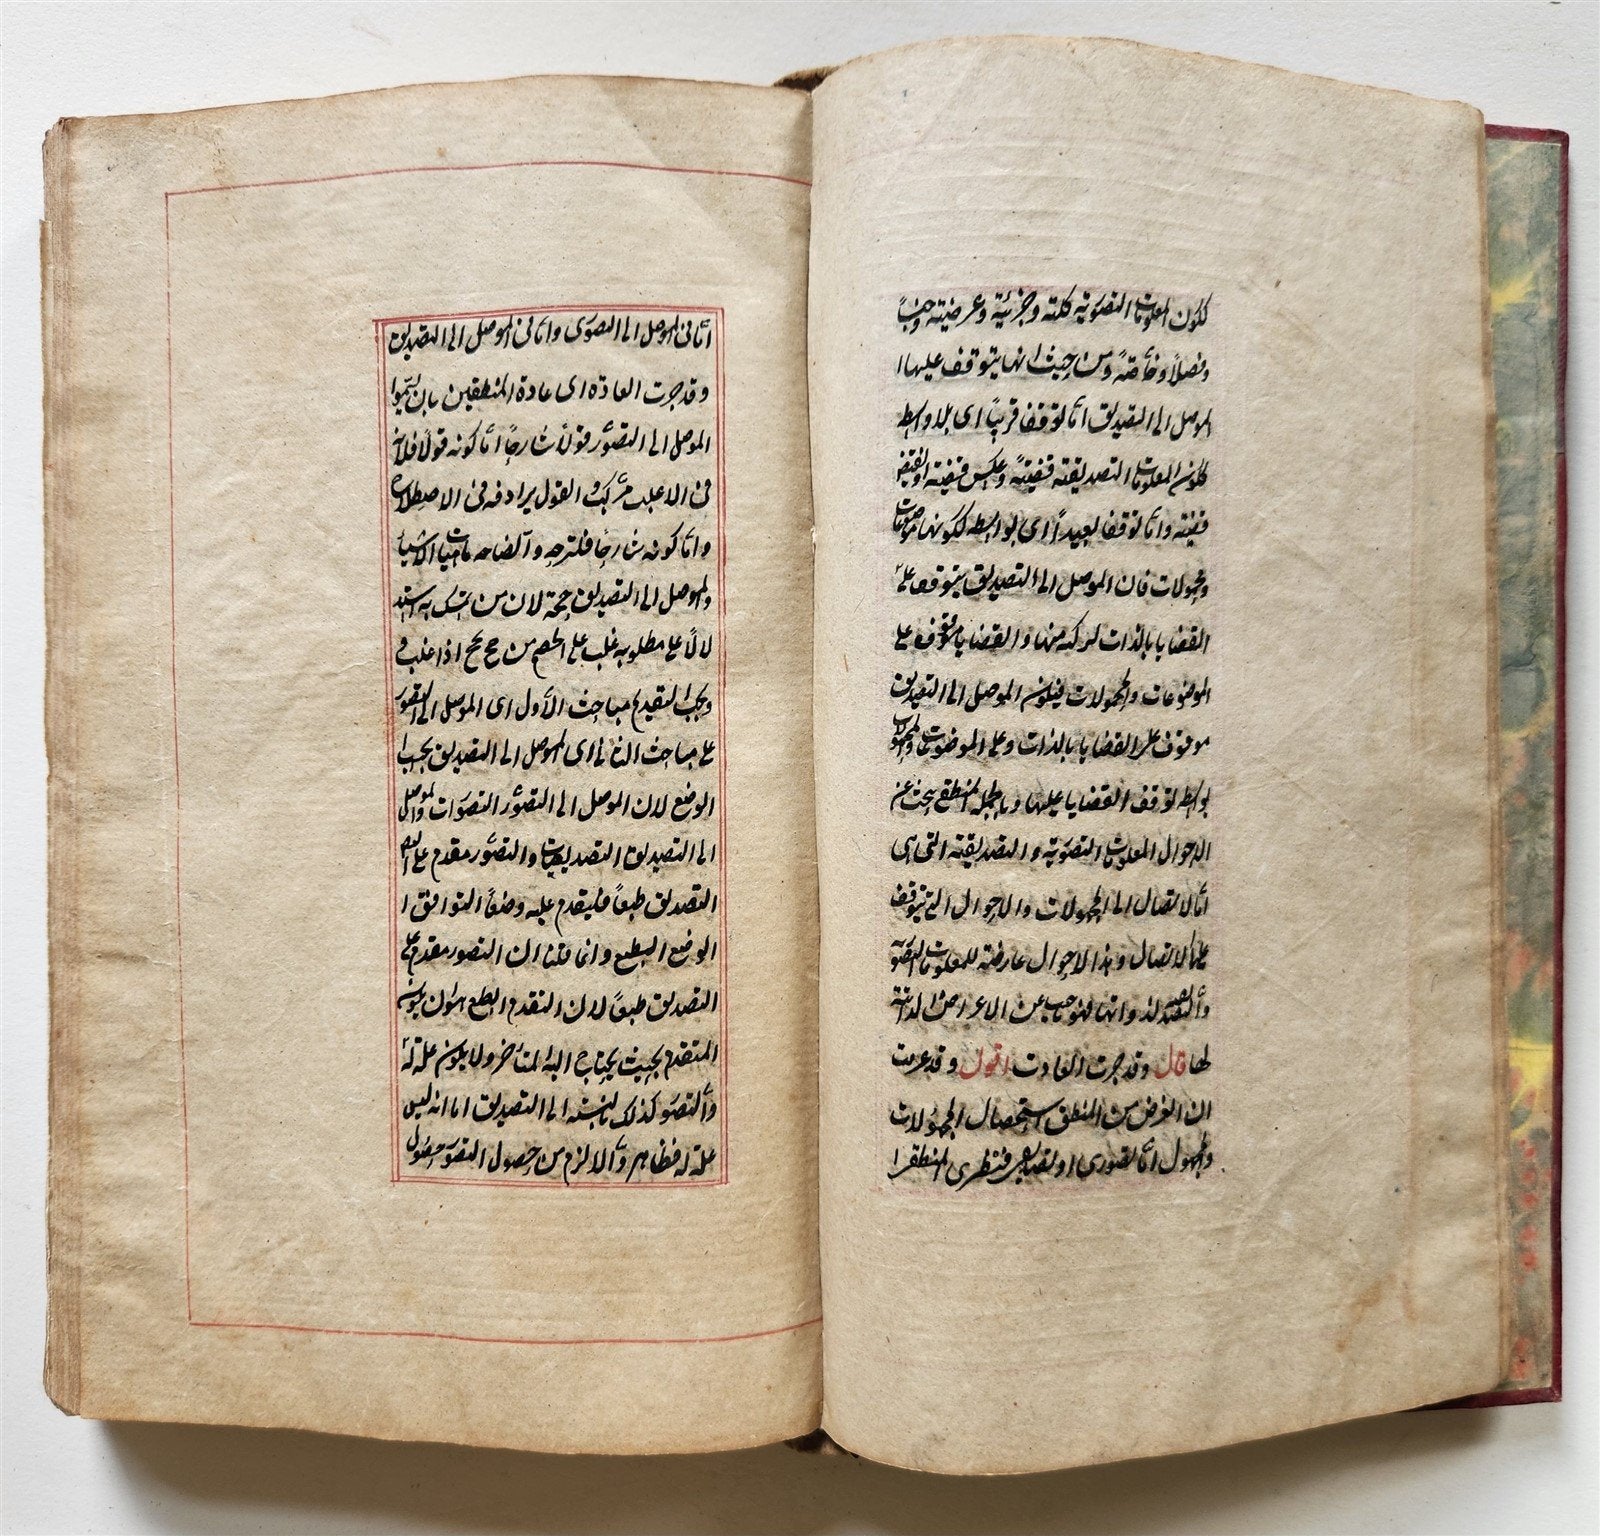 ككون المعلومات التصورية كلية وجزئية وعرضية وجنساً
وفصلاً وخاصة ومن حيث انها يتوقف عليها ا
لموصل الى التصديق اما توقفا قريباً اى بلا واسطه
ككون المعلومات التصديقية قضيتة وعكس قضية او نقيض
قضية واما توقفا بعيداً اى بواسطه ككونها موضوعات
ومحمولات فان الموصل الى التصديق يتوقف على
القضايا بالذات لتركبه منها والقضايا موقوف على
الموضوعات والمحمولات فيكون الموصل الى التصديق
موقوف على القضايا بالذات وعلى الموضوعات والمحمولات
بواسطه توقف القضايا عليها وبالجمله المنطقى يبحث عن
الاحوال المعلومات التصورية والتصديقية التى هى
اما الاتصال الى المجهولات والاحوال التى يتوقف
عليها الاتصال وهذا الاحوال عارضة للمعلومات التصورية
والتصديقية لذواتها فهو باحث عن الاعراض الذاتية
لها قال وقد جرت العادت اقول وقد عرفت
ان الغرض من المنطق استحصال المجهولات
والمجهول اما تصورى او تصديقى فنظرى المنطقى ا
اما فى الموصل الى التصورى واما فى الموصل الى التصديق
وقد جرت العادة اى عادة المنطقين بان يسموا
الموصل الى التصور قولاً شارحاً اما كونه قولاً فلانه
فى الاغلب مركب والقول يرادفه فى الاصطلاح
واما كونه شارحاً فلشرحه وايضاحه ماهيات الاشياء
والموصل الى التصديق حجة لان من تمسك به استد
لالاً على مطلوبه غلب على الخصم من حج يحج اذا غلب و
ويجب تقديم مباحث الأول اى الموصل الى التصور
على مباحث الثانى اى الموصل الى التصديق بحسب ا
الوضع لان الموصل الى التصور التصورات والموصل
الى التصديق التصديقات والتصور مقدم على
التصديق طبعاً فليقدم عليه وضعاً التوافق ا
الوضع الطبع وانما قلنا ان التصور مقدم على
التصديق طبعاً لان التقدم الطبع هو ان يكون
المتقدم بحيث يحتاج اليه المتأخر ولا يكون علة له
والتصور كذلك بالنسبة الى التصديق اما انه ليس
علة له فظاهر والا لزم من حصول التصور حصول